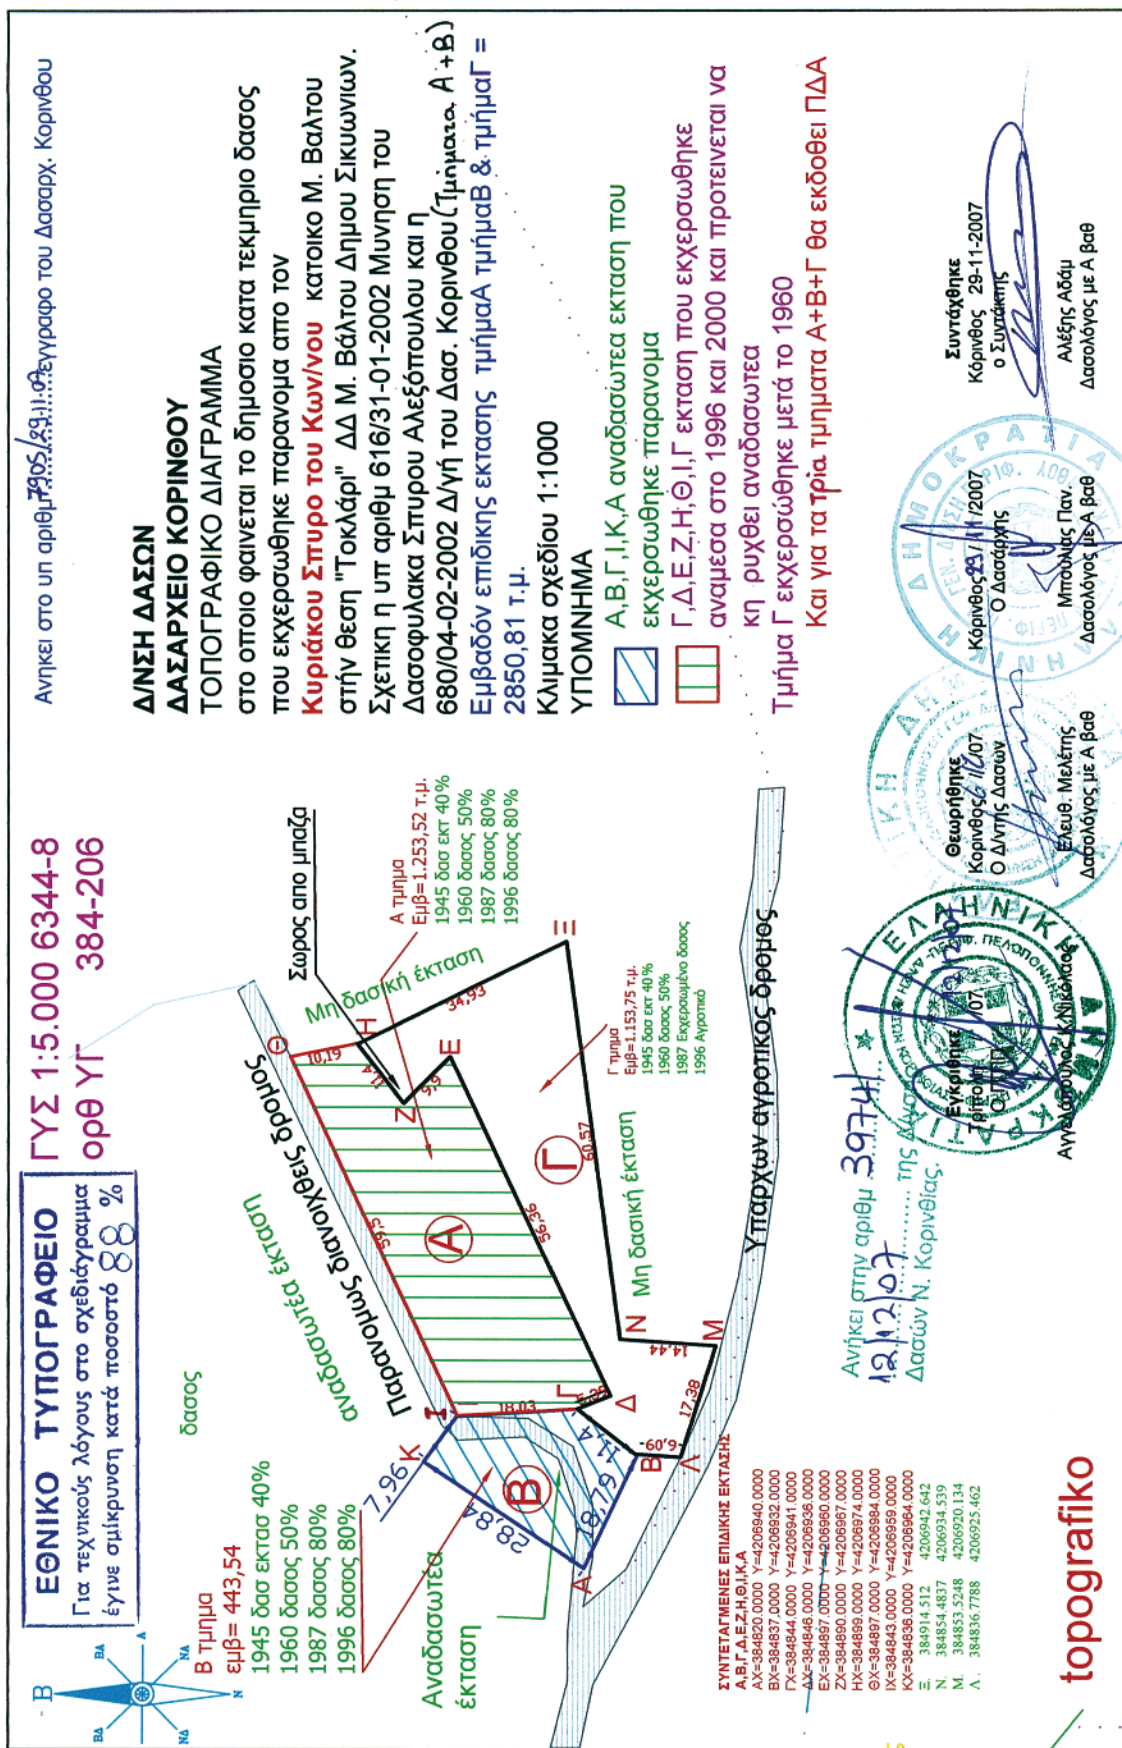 Ανηκει στο υπ αριθμ 7905/29.11.07 εγγραφο του Δασαρχ. Κορινθου
Δ/ΝΣΗ ΔΑΣΩΝ
ΔΑΣΑΡΧΕΙΟ ΚΟΡΙΝΘΟΥ
ΤΟΠΟΓΡΑΦΙΚΟ ΔΙΑΓΡΑΜΜΑ
στο οποιο φαινεται το δημοσιο κατα τεκμηριο δασος
που εκχερσωθηκε παρανομα απο τον
Κυριάκου Σπυρο του Κων/νου κατοικο Μ. Βαλτου
στήν θεση "Τοκλάρι" ΔΔ Μ. Βάλτου Δημου Σικυωνιων.
Σχετικη η υπ αριθμ 616/31-01-2002 Μυνηση του
Δασοφυλακα Σπυρου Αλεξόπουλου και η
680/04-02-2002 Δ/γή του Δασ. Κορινθου (Τμήματα Α+Β)
Εμβαδόν επιδικης εκτασης τμήμαΑ τμήμαΒ & τμήμαΓ =
2850,81 τ.μ.
Κλιμακα σχεδίου 1:1000
ΥΠΟΜΝΗΜΑ
Α,Β,Γ,Ι,Κ,Α αναδασώτεα εκταση που
εκχερσωθηκε παρανομα
Γ,Δ,Ε,Ζ,Η,Θ,Ι,Γ εκταση που εκχερσωθηκε
αναμέσα στο 1996 και 2000 και προτεινεται να
κη ρυχθει αναδασωτεα
Τμήμα Γ εκχερσώθηκε μετά το 1960
Και για τα τρία τμηματα Α+Β+Γ θα εκδοθει ΠΔΑ
ΓΥΣ 1:5.000 6344-8
ορθ ΥΓ 384-206
ΕΘΝΙΚΟ ΤΥΠΟΓΡΑΦΕΙΟ
Για τεχνικούς λόγους στο σχεδιάγραμμα
έγινε σμίκρυνση κατά ποσοστό 88 %
Β
ΒΑ
Α
ΝΑ
Ν
ΝΔ
ΒΔ
δασος
Β τμημα
εμβ= 443,54
1945 δασ εκτασ 40%
1960 δασος 50%
1987 δασος 80%
1996 δασος 80%
Αναδασωτέα
έκταση
αναδασωτέα έκταση
Παρανομως διανοιχθεις δρομος
Σωρος απο μπαζα
Μη δασική έκταση
Α τμημα
Εμβ=1.253,52 τ.μ.
1945 δασ εκτ 40%
1960 δασος 50%
1987 δασος 80%
1996 δασος 80%
Γ τμημα
Εμβ=1.153,75 τ.μ.
1945 δασ εκτ 40%
1960 δασος 50%
1987 Εκχερσωμένο δασος
1996 Αγροτικό
Μη δασική έκταση
Υπαρχων αγροτικος δρομος
Θ
Η
Ζ
Ε
Ξ
Ν
Μ
Λ
Β
Δ
Γ
Ι
Κ
Α
Α
Β
Γ
10,19
11,4
9,9
34,93
59,5
56,36
60,57
14,44
17,38
-6,09-
5,39
18,03
11,4
18,79
28,84
7,96
ΣΥΝΤΕΤΑΓΜΕΝΕΣ ΕΠΙΔΙΚΗΣ ΕΚΤΑΣΗΣ
Α,Β,Γ,Δ,Ε,Ζ,Η,Θ,Ι,Κ,Α
ΑΧ=384820.0000 Υ=4206940.0000
ΒΧ=384837.0000 Υ=4206932.0000
ΓΧ=384844.0000 Υ=4206941.0000
ΔΧ=384846.0000 Υ=4206936.0000
ΕΧ=384897.0000 Υ=4206960.0000
ΖΧ=384890.0000 Υ=4206967.0000
ΗΧ=384899.0000 Υ=4206974.0000
ΘΧ=384897.0000 Υ=4206984.0000
ΙΧ=384843.0000 Υ=4206959.0000
ΚΧ=384836.0000 Υ=4206964.0000
Ξ. 384914.512 4206942.642
Ν. 384854.4837 4206934.539
Μ. 384853.5248 4206920.134
Λ. 384836.7788 4206925.462
topografiko
Ανήκει στην αριθμ 3974
12/12/07 της Δ/νσης
Δασών Ν. Κορινθίας.
Εγκριθηκε
Τρίπολη 12/12/07
Αγγελόπουλος Κ.Νικόλαος
Θεωρήθηκε
Κορινθος 6/12/07
Ο Δ/ντης Δασων
Ελευθ. Μελέτης
Δασολόγος με Α βαθ
Κόρινθος 29/11/2007
Ο Δασάρχης
Μπούλιας Παν.
Δασολόγος με Α βαθ
Συντάχθηκε
Κόρινθος 29-11-2007
ο Συντάκτης
Αλέξης Αδάμ
Δασολόγος με Α βαθ
ΕΛΛΗΝΙΚΗ ΔΗΜΟΚΡΑΤΙΑ